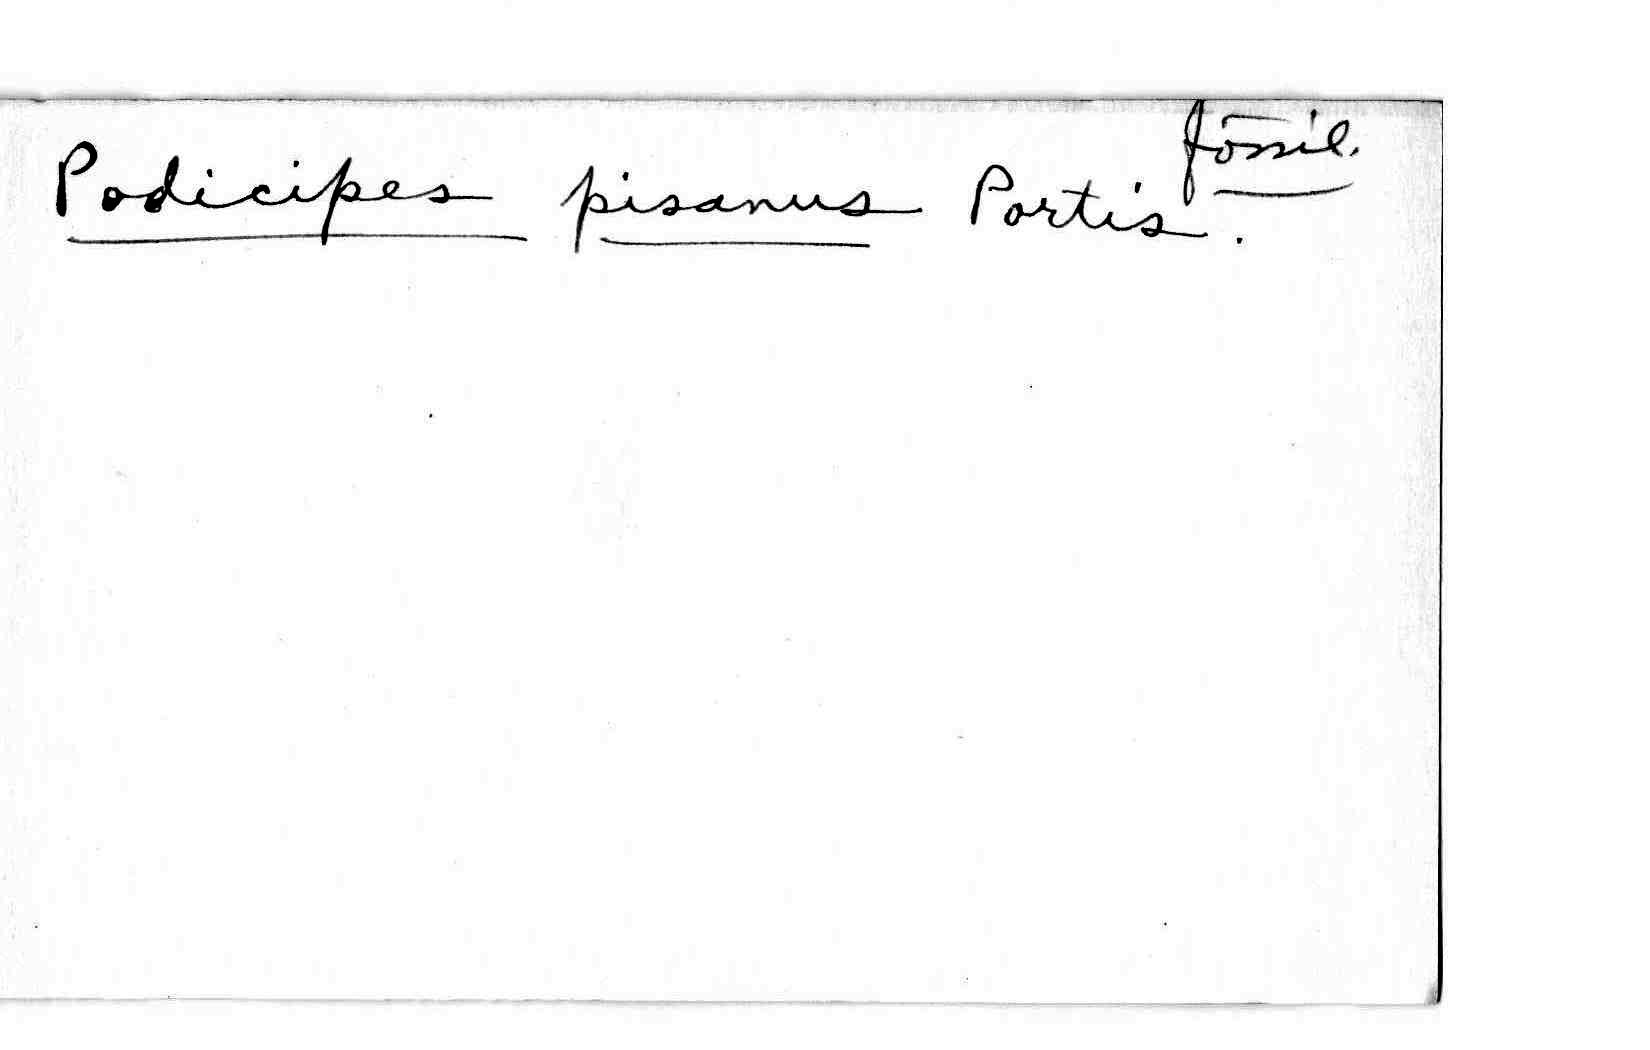 fossil.
Podicipes pisanus Portis.